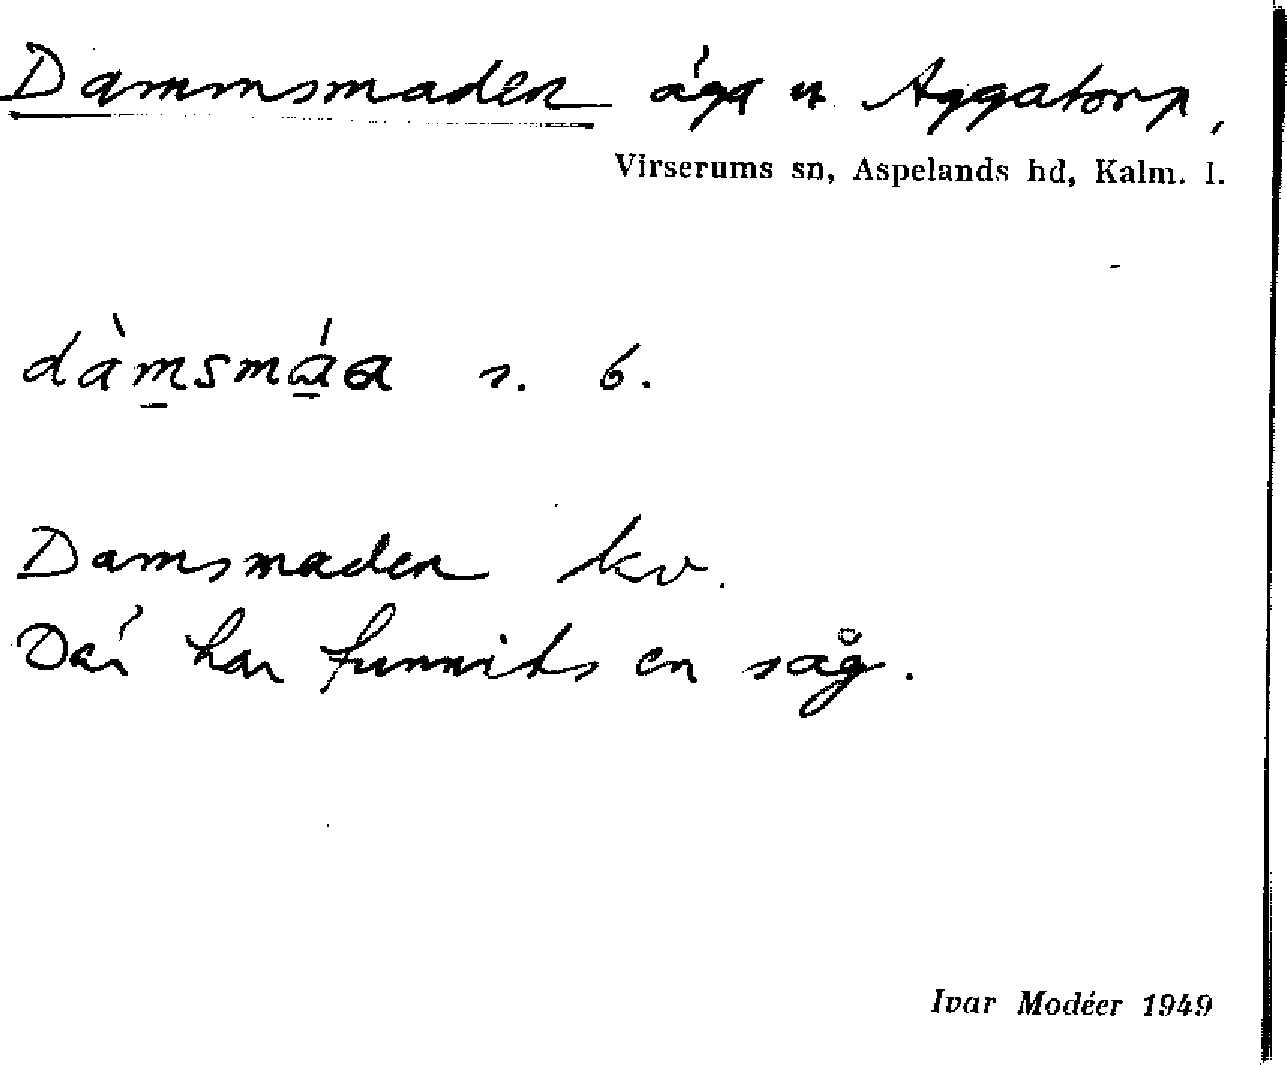 Dammsmaden äga u Aggatorp,
Virserums sn, Aspelands hd, Kalm. l.
dàm̲smá̲a s. b.
Damsmaden kv.
Där har funnits en såg.
Ivar Modéer 1949